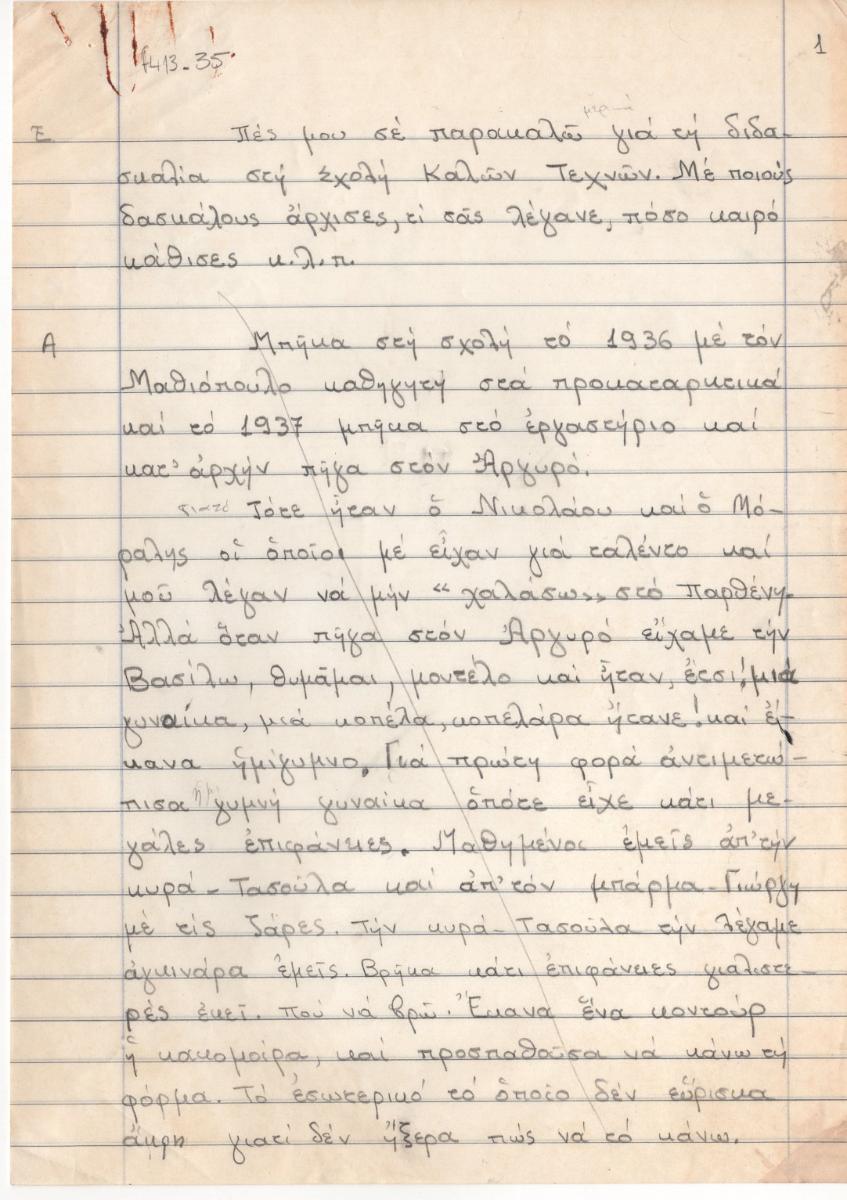 1
7413-35
μερικά
Ε Πές μου σέ παρακαλῶ γιά τή διδα-
σκαλία στή Σχολή Καλῶν Τεχνῶν. Μέ ποιούς
δασκάλους ἄρχισες, τί σᾶς λέγανε, πόσο καιρό
κάθισες κ.λ.π.
Α Μπῆκα στή σχολή τό 1936 μέ τόν
Μαθιόπουλο καθηγητή στά προκαταρκτικά
καί τό 1937 μπῆκα στό ἐργαστήριο καί
κατ' ἀρχήν πῆγα στόν Ἀργυρό.
Τότε ἦταν ὁ Νικολάου καί ὁ Μό-
ραλης οἱ ὁποῖοι μέ εἶχαν γιά ταλέντο καί
μοῦ λέγαν νά μήν "χαλάσω" στό Παρθένη.
Ἀλλά ὅταν πῆγα στόν Ἀργυρό εἴχαμε τήν
Βασίλω, θυμᾶμαι, μοντέλο καί ἦταν, ἔτσι! μιά
γυναίκα, μιά κοπέλα, κοπελάρα ἤτανε! καί ἔ-
κανα ἡμίγυμνο. Γιά πρώτη φορά ἀντιμετώ-
πισα γυμνή γυναίκα ὁπότε εἶχε κάτι με-
γάλες ἐπιφάνειες. Μαθημένοι ἐμεῖς ἀπ' τήν
κυρά-Τασούλα καί ἀπ' τόν μπάρμα-Γιώργη
μέ τίς ζάρες. Τήν κυρά-Τασούλα τήν λέγαμε
ἀγκινάρα ἐμεῖς. Βρῆκα κάτι ἐπιφάνειες γιαλιστε-
ρές ἐκεῖ. Πού νά βρῶ. Ἔκανα ἕνα κοντούρ
ἡ κακομοίρα, καί προσπαθοῦσα νά κάνω τή
φόρμα. Τό ἐσωτερικό τό ὁποῖο δέν εὕρισκα
ἄκρη γιατί δέν ἤξερα πώς νά τό κάνω.